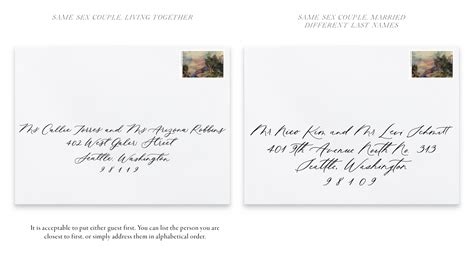 SAME SEX COUPLE, LIVING TOGETHER
Ms Callie Torres and Ms Arizona Robbins
402 West Galer Street
Seattle, Washington
98119
It is acceptable to put either guest first. You can list the person you are
closest to first, or simply address them in alphabetical order.
SAME SEX COUPLE, MARRIED
DIFFERENT LAST NAMES
Mr Nico Kim and Mr Levi Schmitt
401 5th Avenue North No. 313
Seattle, Washington
98109